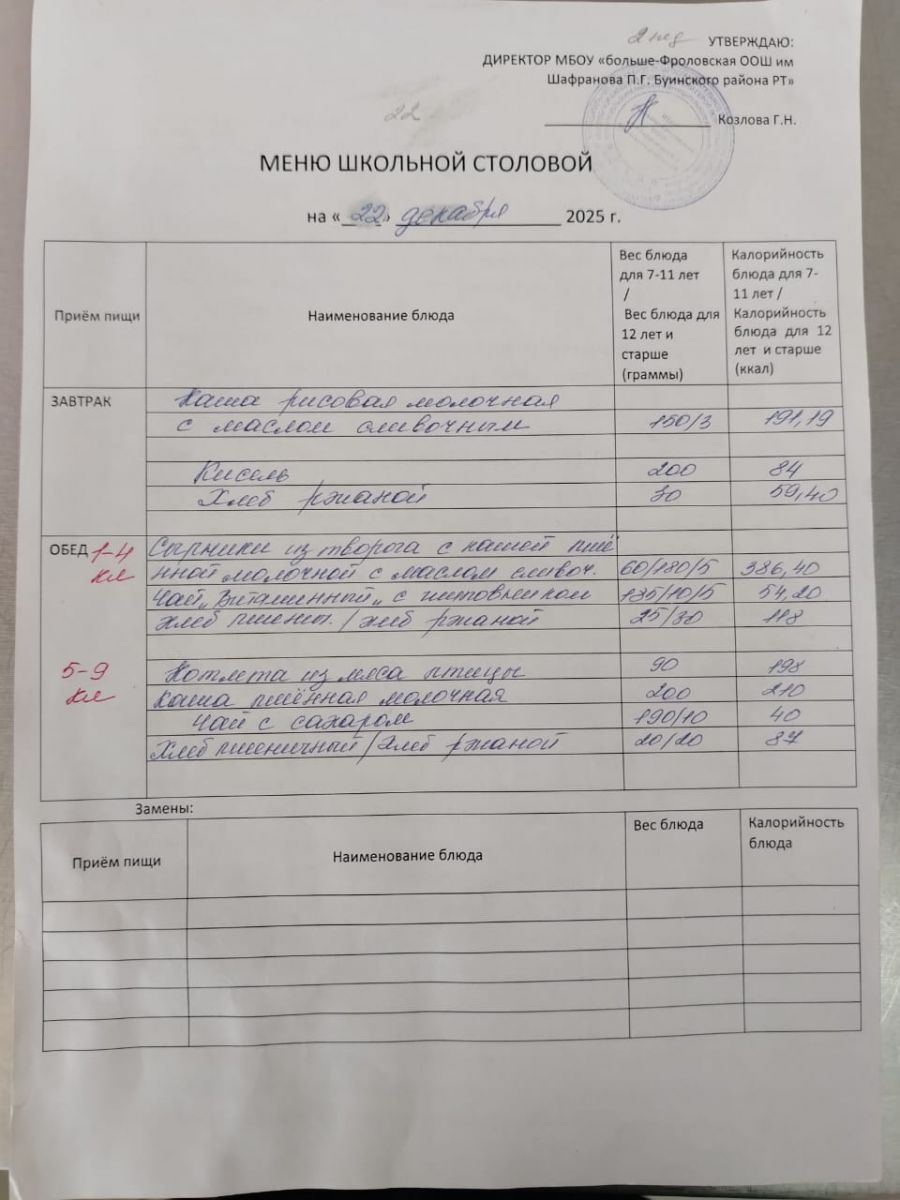 2 нед
УТВЕРЖДАЮ:
ДИРЕКТОР МБОУ «больше-Фроловская ООШ им
Шафранова П.Г. Буинского района РТ»
22
Козлова Г.Н.
МЕНЮ ШКОЛЬНОЙ СТОЛОВОЙ
на « 22 » декабря 2025 г.
Приём пищи
Наименование блюда
Вес блюда
для 7-11 лет
/
Вес блюда для
12 лет и
старше
(граммы)
Калорийность
блюда для 7-
11 лет /
Калорийность
блюда для 12
лет и старше
(ккал)
ЗАВТРАК Каша рисовая молочная
с маслом сливочным 150/3 191,19
Кисель 200 84
Хлеб ржаной 30 59,40
ОБЕД 1-4 Сырники из творога с кашей пшё
кл нной молочной с маслом сливоч. 60/180/5 386,40
Чай „Витаминный„ с шиповником 185/10/5 54,20
Хлеб пшенич. / хлеб ржаной 25/30 118
5-9 Котлета из мяса птицы 90 198
кл Каша пшённая молочная 200 210
Чай с сахаром 190/10 40
Хлеб пшеничный / Хлеб ржаной 20/20 87
Замены:
Приём пищи
Наименование блюда
Вес блюда
Калорийность
блюда